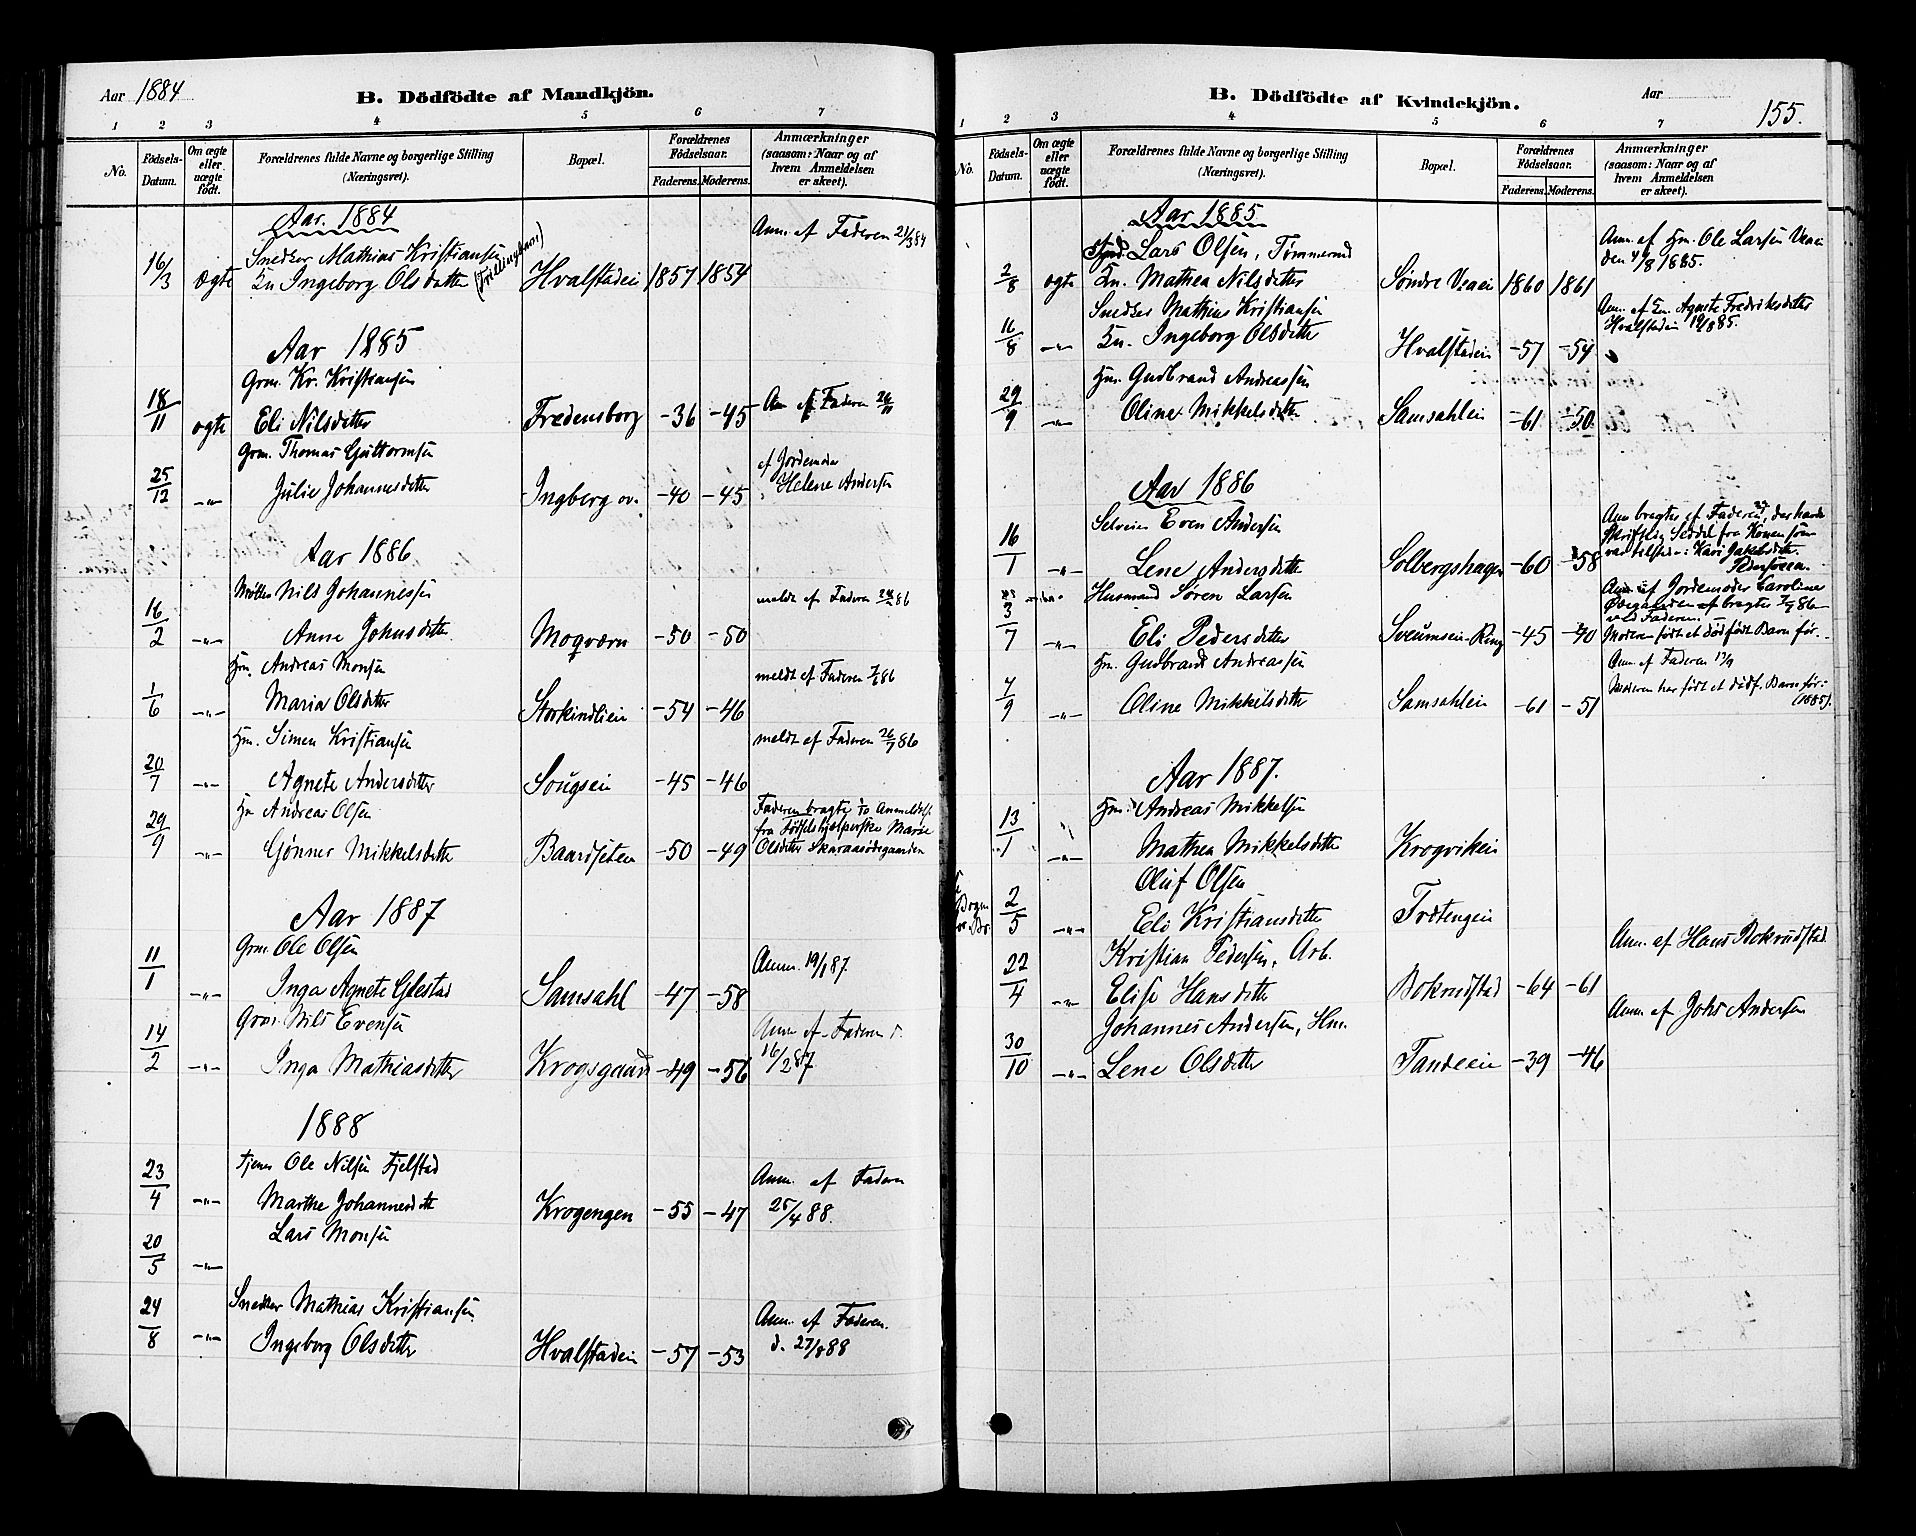 Aar 1884
B. Dödfödte af Mandkjön.
1 2 3 4 5 6 7
No. Födsels-Datum. Om ægte eller uægte födt. Forældrenes fulde Navne og borgerlige Stilling (Næringsvei). Bopæl. Forældrenes Födselsaar. Faderens. Moderens. Anmærkninger (saasom: Naar og af hvem Anmeldelsen er skeet).
Aar. 1884
Snedker Mathias Kristiansen Anm. af Faderen 21/3 84
16/3 ægte Kn Ingeborg Olsdatter (Trillingbarn) Hvalstadei 1857 1854
Aar 1885
Grm. Kr. Kristiansen
18/11 ægte Eli Nilsdatter Fredensborg -36 -45 An af Faderen 26/11
Grm. Thomas Guttormsen af Jordemoder
25/12 -"- Julie Johannesdatter Ingberg ov. -40 -45 Helene Andersen
Aar 1886
Møller Nils Johannessen meldt af Faderen 86
16/2 -"- Anne Johnsdatter Moqværn -50 -50
Hm. Andreas Monsen meldt af Faderen 86
1/6 -"- Maria Olsdatter Storkindlien -54 -46
Hm. Simen Kristiansen meldt af Faderen 26/7 86
20/7 -"- Agnete Andersdatter Sougsei -45 -46
Hm Andreas Olsen Faderen bragte Anmeldels.
fra Födselshjelperske Marie
29/9 -"- Gønner Mikkelsdatter Baardseten -50 -49 Olsdatter Skaraasødegaarden
Aar 1887
Grm. Ole Olsen Anm. 19/1 87.
11/1 -"- Inga Agnete Glestad Samsahl -47 -58
Grm. Nils Evensen Anm af Faderen d.
14/2 -"- Inga Mathiasdatter Krogsgaard -49 -56 16/2 87
1888
Tjener Ole Nilsen Fjelstad Anm. af Faderen
23/4 -"- Marthe Johannesdatt Krogengen -55 -47 25/4 88.
Lars Monsen
20/5 -"-
Snedker Mathias Kristiansen. Anm. af Faderen.
24/8 -"- Ingeborg Olsdatter Hvalstadein -57 -53 d. 27/8 88
B. Dödfödte af Kvindekjön.
Aar
155.
1 2 3 4 5 6 7
No. Födsels-Datum. Om ægte eller uægte födt. Forældrenes fulde Navne og borgerlige Stilling (Næringsvei). Bopæl. Forældrenes Födselsaar. Faderens. Moderens. Anmærkninger (saasom: Naar og af hvem Anmeldelsen er skeet).
Aar 1885
Lars Olsen, Tømmermd Anm. af Hm. Ole Larsen Veaei
den 4/8 1885.
2/8 ægte Kn. Mathea Nilsdatter Søndre Veaei 1860 1861
Snedker Mathias Kristiansen Anm. af Kn. Agnete Fredriksdatter
Hvalstadei 19/8 85.
11/8 -"- Kn. Ingeborg Olsdatter Hvalstadei -57 -54
Hm. Gudbrand Andreassen
29/9 -"- Oline Mikkelsdatter Samsahlein -61 -50
Aar 1886
Selveier Even Andersen Anm bragtes af Faderen, der havde
skriftlig Seddel fra Konen som
16/1 -"- Lene Andersdatter Solbergshagen -60 -58 var tilstede: Kari Jakobsdatter.
Husmand Søren Larsen Anm af Jordemoder Caroline
bragtes 86
ved Faderen.
3/7 -"- Eli Pedersdatter Sveumseie-Ring -45 -40 Moderen født et dødfødt Barn før.
Hm. Gudbrand Andreassen Anm. af Faderen 13/9
7/9 -"- Oline Mikkelsdatter Samsahlein -61 -51 Moderen har født et dødf. Barn før:
(1885).
Aar 1887.
Hm. Andreas Mikkelsen
13/1 -"- Mathea Mikkelsdatter Krogvikein
Oluf Olsen
2/5 -"- Eli Kristiansdatter Trætengein
Kristian Pedersen, Arb. Anm. af Hans Bokrudstad
22/4 -"- Elise Hansdatter Bokrudstad -64 -61
Johannes Andersen, Hm. Anm. af Johs Andersen
30/10 -"- Lene Olsdatter Tandeein -39 -46